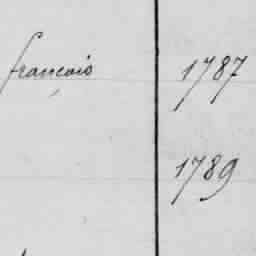 français 1787
1789